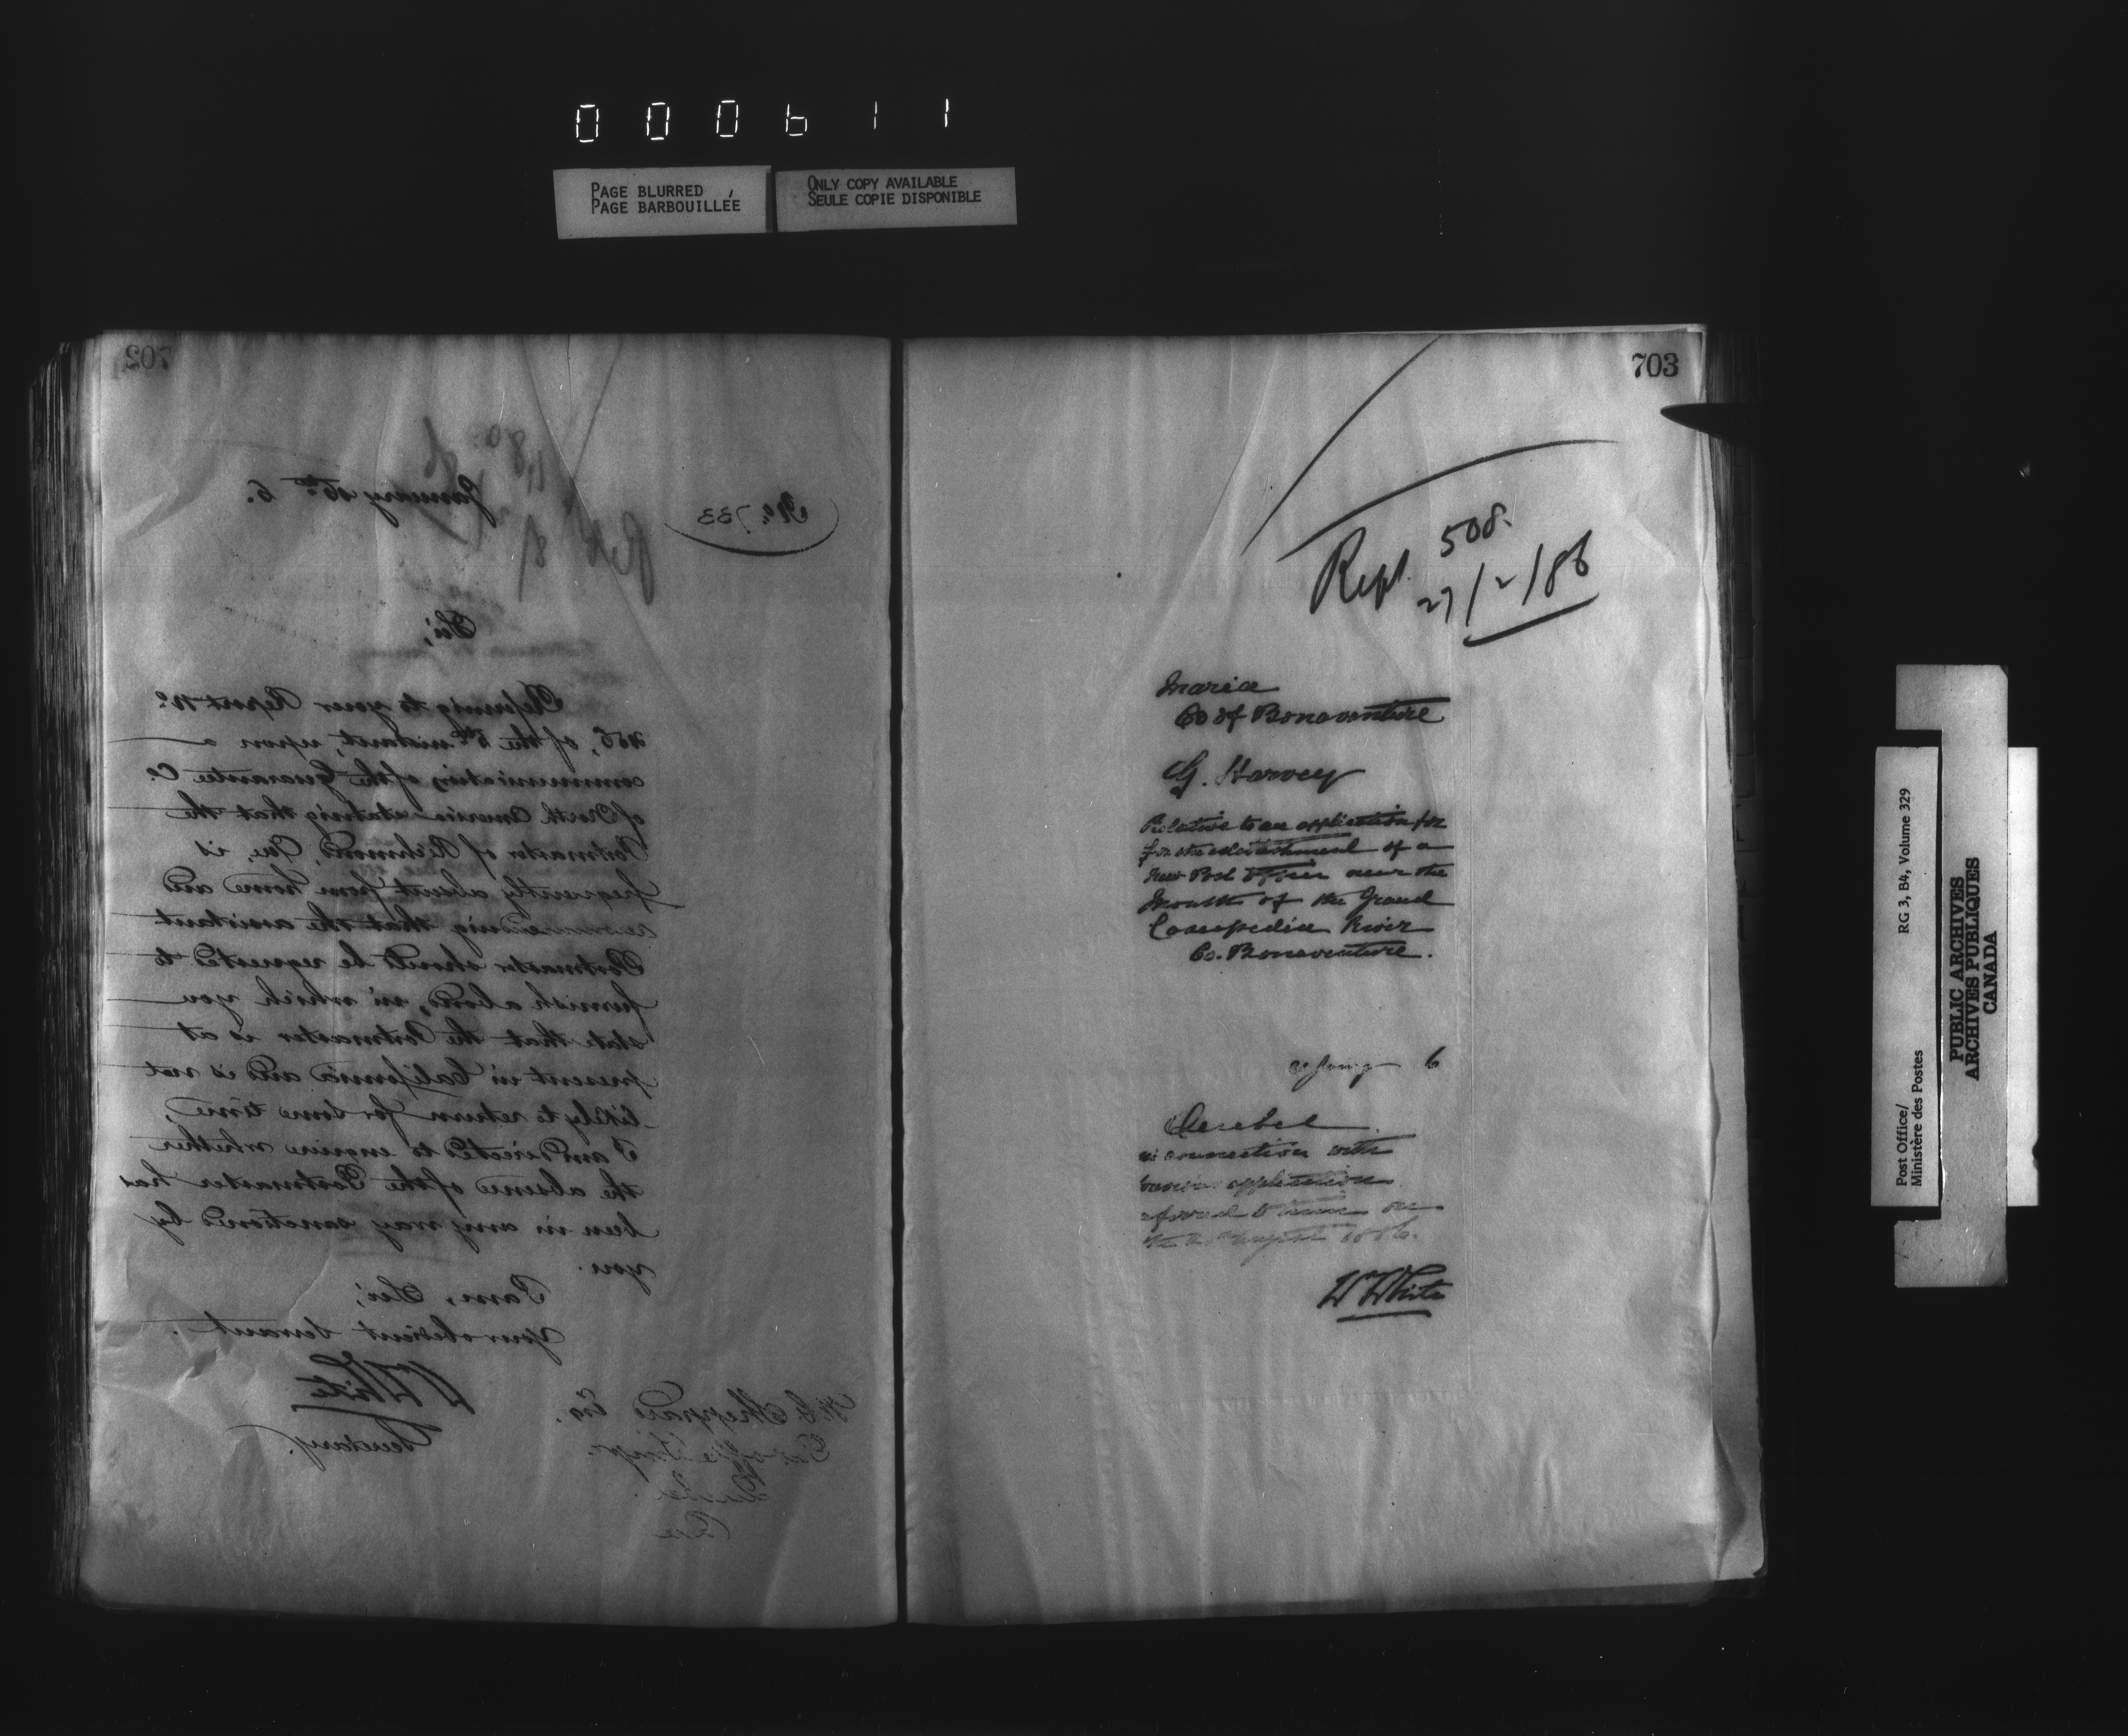 000611
PAGE BLURRED
PAGE BARBOUILLÉE
ONLY COPY AVAILABLE
SEULE COPIE DISPONIBLE
702
No. 733
January 16th 6.
Sir,
Referring to your Report No.
of the 5th instant, upon a
communication of the Guarantee Co.
of North America stating that the
Postmaster of Richmond, Que, is
frequently absent from home and
recommending that the assistant
Postmaster should be requested to
furnish a bond, in which you
state that the Postmaster is at
present in California and is not
likely to return for some time,
I am directed to enquire whether
the absence of the Postmaster has
been in any way sanctioned by
you.
I am, Sir,
Your obedient Servant.
WWhite
Secretary.
Sheppard Esq.
Post Office Insp.
703
Rept. 508.
27/2/86
Maria
Co of Bonaventure
G. Harvey
Relative to an application for
for the establishment of a
New Post Office near the
Mouth of the Grand
Cascapedia River
Co. Bonaventure.
6
Quebec
in connection with
application
referred to on
WWhite
Post Office/
Ministère des Postes
RG 3, B4, Volume 329
PUBLIC ARCHIVES
ARCHIVES PUBLIQUES
CANADA